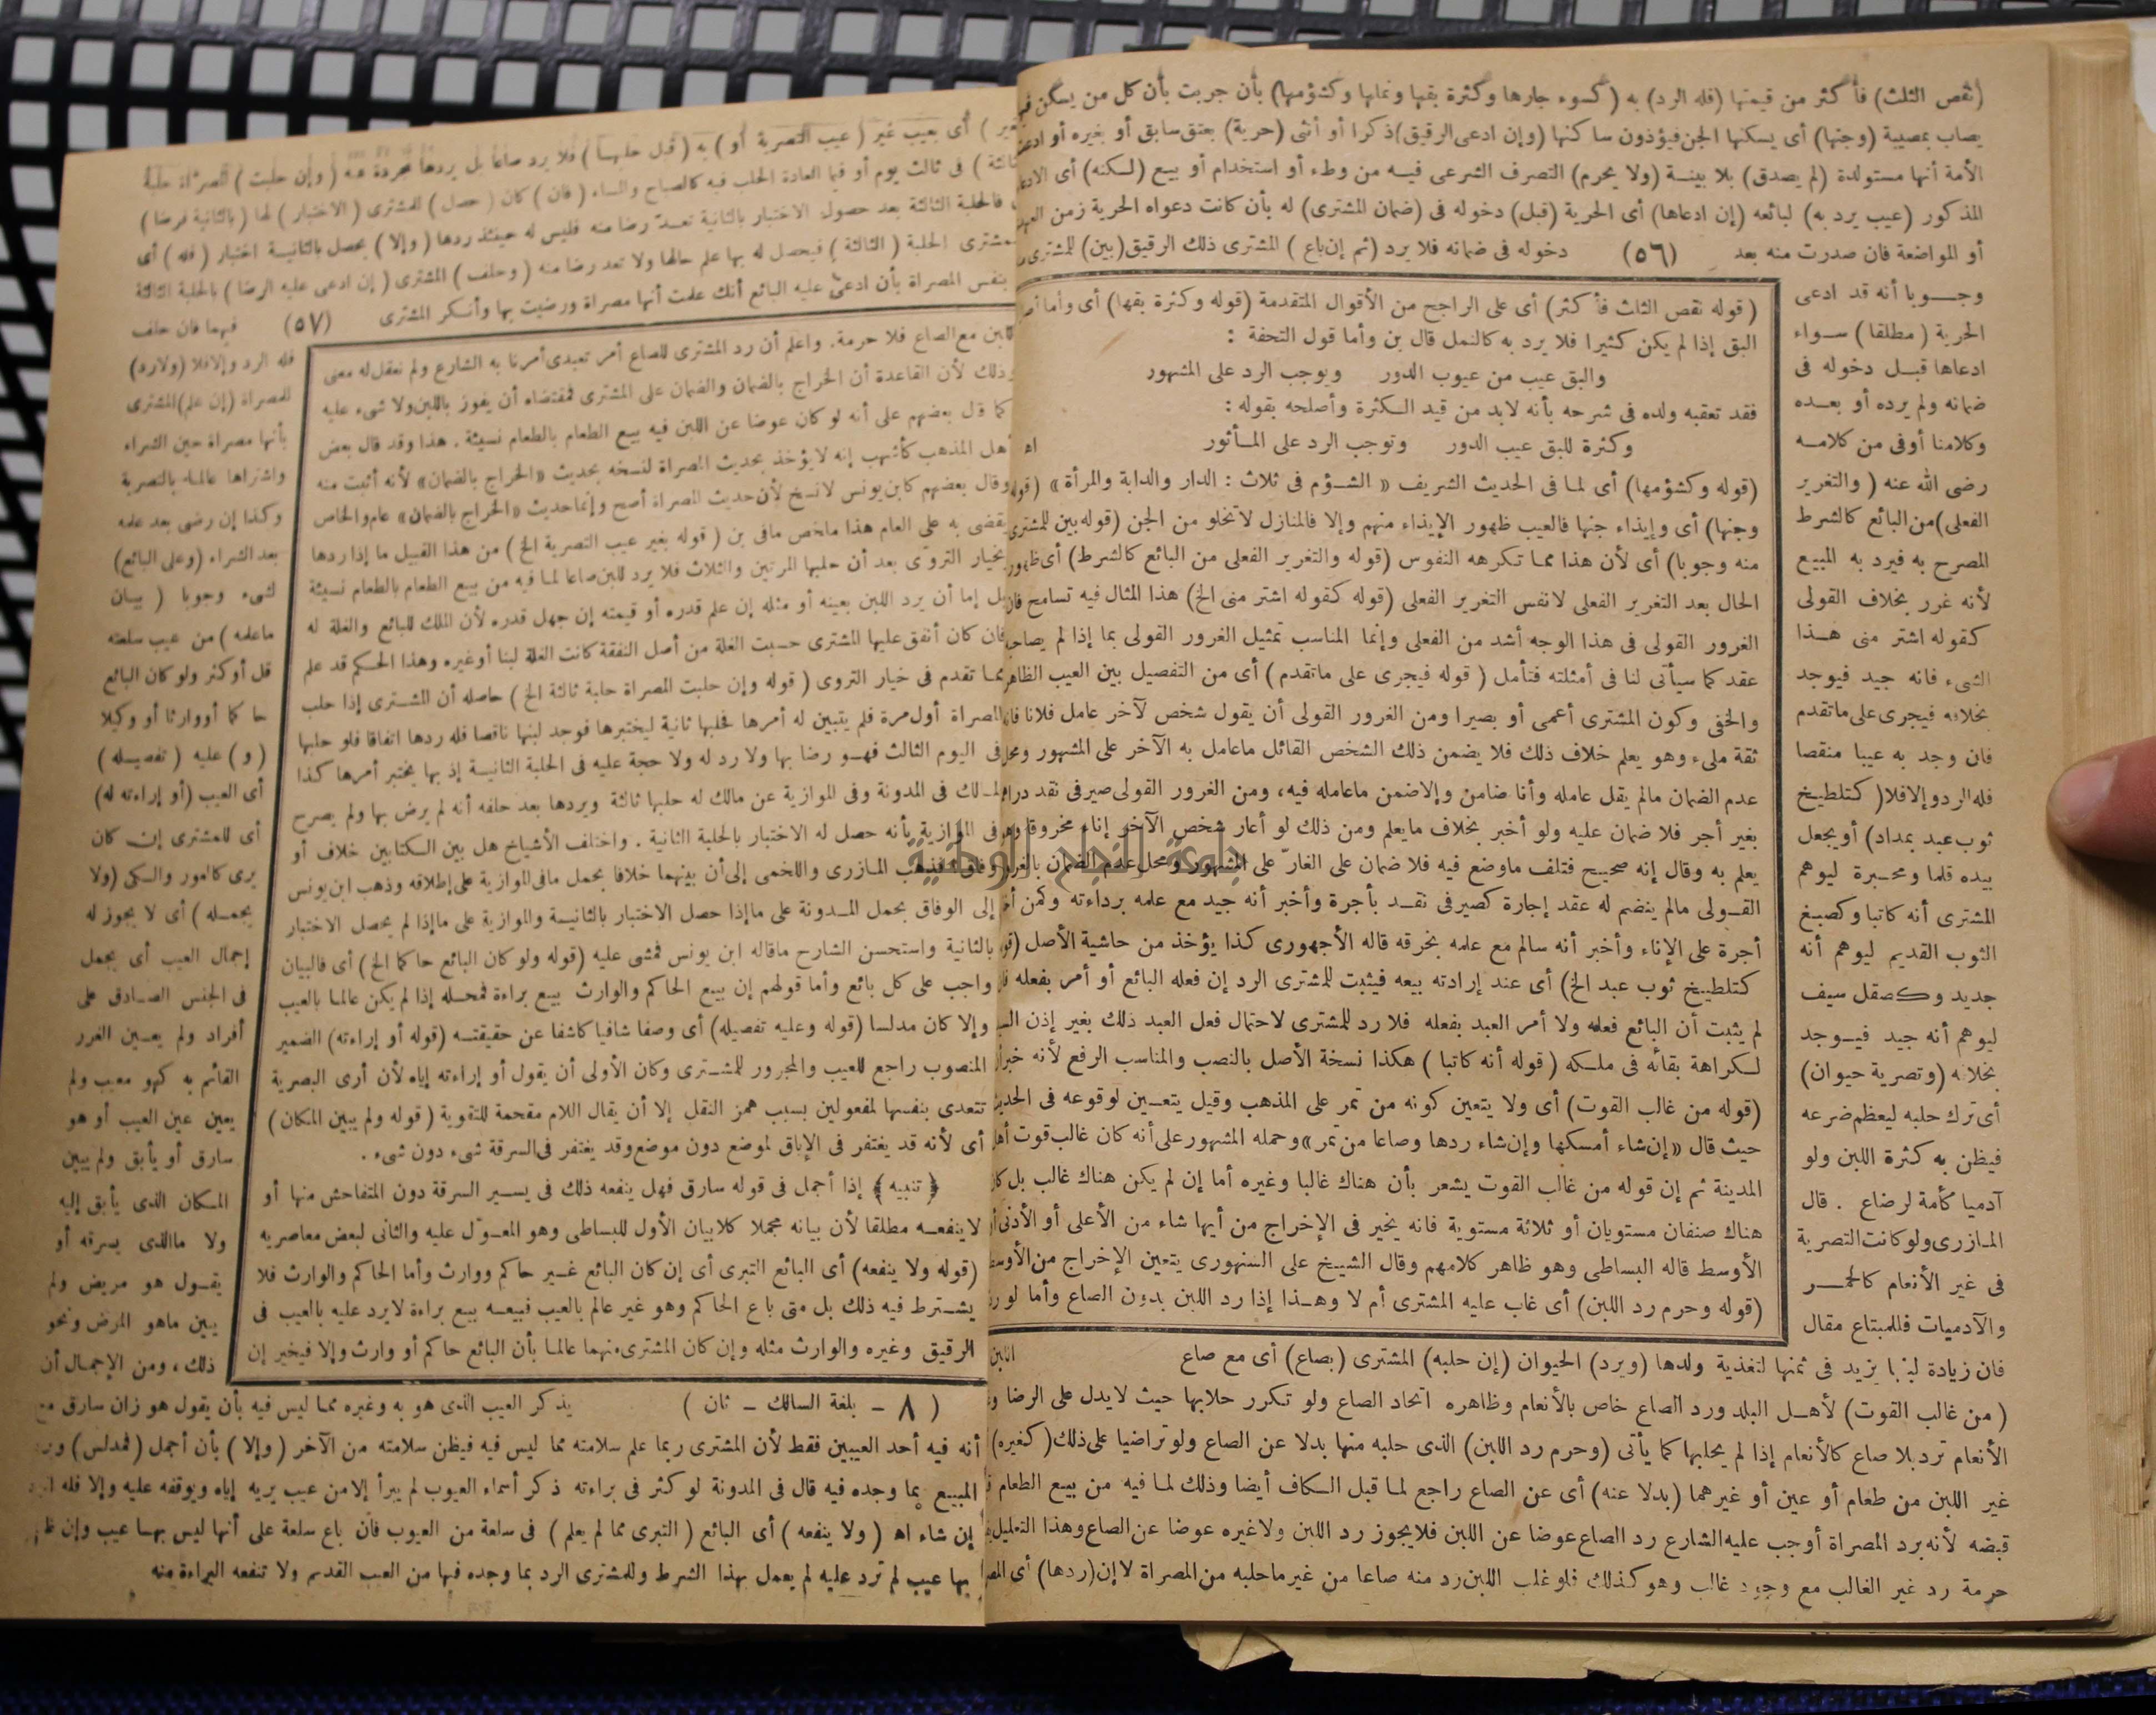 (نقص الثلث) فأكثر من قيمتها (فله الرد) به (كسوء جارها وكثرة بقها ونملها وكشؤمها) بأن جربت بأن كل من يسكن
يصاب بمصيبة (وجنها) أى يسكنها الجن فيؤذون ساكنها (وإن ادعى الرقيق) ذكرا أو أنثى (حرية) بعتق سابق أو بغيره أو
الأمة أنها مستولدة (لم يصدق) بلا بينة (ولا يحرم) التصرف الشرعى فيه من وطء أو استخدام أو بيع (لكنه) أى
المذكور (عيب يرد به) لبائعه (إن ادعاها) أى الحرية (قبل) دخوله فى (ضمان المشترى) له بأن كانت دعواه الحرية زمن
أو المواضعة فان صدرت منه بعد (٥٦) دخوله فى ضمانه فلا يرد (ثم إن باع) المشترى ذلك الرقيق (بين) للمشترى
وجوبا أنه قد ادعى
الحرية (مطلقا) سواء
ادعاها قبل دخوله فى
ضمانه ولم يرده أو بعده
وكلامنا أوفى من كلامه
رضى الله عنه (والتغرير
الفعلى) من البائع كالشرط
المصرح به فيرد به المبيع
لأنه غرر بخلاف القولى
كقوله اشتر منى هذا
الشىء فانه جيد فيوجد
بخلافه فيجرى على ماتقدم
فان وجد به عيبا منقصا
فله الرد وإلا فلا (كتلطيخ
ثوب عبد بمداد) أو يجعل
بيده قلما ومحبرة ليوهم
المشترى أنه كاتبا وكصبغ
الثوب القديم ليوهم أنه
جديد وكصقل سيف
ليوهم أنه جيد فيوجد
بخلافه (وتصرية حيوان)
أى ترك حلبه ليعظم ضرعه
فيظن به كثرة اللبن ولو
آدميا كأمة لرضاع . قال
المازرى ولو كانت التصرية
فى غير الأنعام كالحمر
والآدميات فللمبتاع مقال
(قوله نقص الثلث فأكثر) أى على الراجح من الأقوال المتقدمة (قوله وكثرة بقها) أى وأما
البق إذا لم يكن كثيرا فلا يرد به كالنمل قال بن وأما قول التحفة :
والبق عيب من عيوب الدور ويوجب الرد على المشهور
فقد تعقبه ولده فى شرحه بأنه لابد من قيد الكثرة وأصلحه بقوله :
وكثرة للبق عيب الدور وتوجب الرد على المأثور اه
(قوله وكشؤمها) أى لما فى الحديث الشريف « الشؤم فى ثلاث : الدار والدابة والمرأة » (قوله
وجنها) أى وإيذاء جنها فالعيب ظهور الإيذاء منهم وإلا فالمنازل لاتخلو من الجن (قوله بين للمشترى
منه وجوبا) أى لأن هذا مما تكرهه النفوس (قوله والتغرير الفعلى من البائع كالشرط) أى ظهور
الحال بعد التغرير الفعلى لا نفس التغرير الفعلى (قوله كقوله اشتر منى الخ) هذا المثال فيه تسامح فان
الغرور القولى فى هذا الوجه أشد من الفعلى وإنما المناسب تمثيل الغرور القولى بما إذا لم يصاحبه
عقد كما سيأتى لنا فى أمثلته فتأمل (قوله فيجرى على ماتقدم) أى من التفصيل بين العيب الظاهر
والخفى وكون المشترى أعمى أو بصيرا ومن الغرور القولى أن يقول شخص لآخر عامل فلانا فانه
ثقة ملىء وهو يعلم خلاف ذلك فلا يضمن ذلك الشخص القائل ماعامل به الآخر على المشهور ومحل
عدم الضمان مالم يقل عامله وأنا ضامن وإلا ضمن ماعامله فيه، ومن الغرور القولى صيرفى نقد دراهم
بغير أجر فلا ضمان عليه ولو أخبر بخلاف مايعلم ومن ذلك لو أعار شخص الآخر إناء مخروقا وهو
يعلم به وقال إنه صحيح فتلف ماوضع فيه فلا ضمان على الغارّ على المشهور ومحل عدم الضمان بالغرور
القولى مالم ينضم له عقد إجارة كصيرفى نقد بأجرة وأخبر أنه جيد مع علمه برداءته وكمن
أجرة على الإناء وأخبر أنه سالم مع علمه بخرقه قاله الأجهورى كذا يؤخذ من حاشية الأصل (قوله
كتلطيخ ثوب عبد الخ) أى عند إرادته بيعه فيثبت للمشترى الرد إن فعله البائع أو أمر بفعله
لم يثبت أن البائع فعله ولا أمر العبد بفعله فلا رد للمشترى لاحتمال فعل العبد ذلك بغير إذن
لكراهة بقائه فى ملكه (قوله أنه كاتبا) هكذا نسخة الأصل بالنصب والمناسب الرفع لأنه خبر
(قوله من غالب القوت) أى ولا يتعين كونه من تمر على المذهب وقيل يتعين لوقوعه فى الحديث
حيث قال « إن شاء أمسكها وإن شاء ردها وصاعا من تمر» وحمله المشهور على أنه كان غالب قوت أهل
المدينة ثم إن قوله من غالب القوت يشعر بأن هناك غالبا وغيره أما إن لم يكن هناك غالب بل كان
هناك صنفان مستويان أو ثلاثة مستوية فانه يخير فى الإخراج من أيها شاء من الأعلى أو الأدنى أو
الأوسط قاله البساطى وهو ظاهر كلامهم وقال الشيخ على السنهورى يتعين الإخراج من الأوسط
(قوله وحرم رد اللبن) أى غاب عليه المشترى أم لا وهذا إذا رد اللبن بدون الصاع وأما لو رد
اللبن
فان زيادة لبنها يزيد فى ثمنها لتغذية ولدها (ويرد) الحيوان (إن حلبه) المشترى (بصاع) أى مع صاع
(من غالب القوت) لأهل البلد ورد الصاع خاص بالأنعام وظاهره اتحاد الصاع ولو تكرر حلابها حيث لا يدل على الرضا
الأنعام ترد بلا صاع كالأنعام إذا لم يحلبها كما يأتى (وحرم رد اللبن) الذى حلبه منها بدلا عن الصاع ولو تراضيا على ذلك (كغيره)
غير اللبن من طعام أو عين أو غيرهما (بدلا عنه) أى عن الصاع راجع لما قبل الكاف أيضا وذلك لما فيه من بيع الطعام
قبضه لأنه برد المصراة أوجب عليه الشارع رد الصاع عوضا عن اللبن فلا يجوز رد اللبن ولا غيره عوضا عن الصاع وهذا التعليل
حرمة رد غير الغالب مع وجود غالب وهو كذلك فلو غلب اللبن رد منه صاعا من غير ماحلبه من المصراة لا إن (ردها) أى
أى بعيب غير (عيب التصرية أو) به (قبل حلبها) فلا يرد صاعا بل يردها مجردة عنه (وإن حلبت) المصراة حلبة
(ثالثة) فى ثالث يوم أو فيما العادة الحلب فيه كالصباح والمساء (فان) كان (حصل) للمشترى (الاختبار) لها (بالثانية فرضا)
فالحلبة الثالثة بعد حصول الاختبار بالثانية تعدّ رضا منه فليس له حينئذ ردها (وإلا) يحصل بالثانية اختبار (فله) أى
للمشترى الحلبة (الثالثة) فيحصل له بها علم حالها ولا تعد رضا منه (وحلف) المشترى (إن ادعى عليه الرضا) بالحلبة الثالثة
بنفس المصراة بأن ادعى عليه البائع أنك علمت أنها مصراة ورضيت بها وأنكر المشترى (٥٧) فيهما فان حلف
فله الرد وإلا فلا (ولا رد)
للمصراة (إن علم) المشترى
بأنها مصراة حين الشراء
واشتراها عالما بالتصرية
وكذا إن رضى بعد علمه
بعد الشراء (وعلى البائع)
لشىء وجوبا (بيان
ماعلمه) من عيب سلعته
قل أو كثر ولو كان البائع
حاكما أو وارثا أو وكيلا
(و) عليه (تفصيله)
أى العيب (أو إراءته له)
أى للمشترى إن كان
يرى كالعور والكى (ولا
يجمله) أى لا يجوز له
إجمال العيب أى بجمل
فى الجنس الصادق على
أفراد ولم يعين الغرر
القائم به كهو معيب ولم
يعين عين العيب أو هو
سارق أو يأبق ولم يبين
المكان الذى يأبق إليه
ولا ماالذى يسرقه أو
يقول هو مريض ولم
يبين ماهو المرض ونحو
ذلك، ومن الإجمال أن
اللبن مع الصاع فلا حرمة. واعلم أن رد المشترى للصاع أمر تعبدى أمرنا به الشارع ولم نعقل له معنى
وذلك لأن القاعدة أن الخراج بالضمان والضمان على المشترى فمقتضاه أن يفوز باللبن ولا شىء عليه
كما قال بعضهم على أنه لو كان عوضا عن اللبن فيه بيع الطعام بالطعام نسيئة . هذا وقد قال بعض
أهل المذهب كأشهب إنه لا يؤخذ بحديث المصراة لنسخه بحديث «الخراج بالضمان» لأنه أثبت منه
وقال بعضهم كابن يونس لا نسخ لأن حديث المصراة أصح وإنما حديث «الخراج بالضمان» عام والخاص
يقضى به على العام هذا ملخص مافى بن (قوله بغير عيب التصرية الخ) من هذا القبيل ما إذا ردها
بخيار التروّى بعد أن حلبها المرتين والثلاث فلا يرد للبن صاعا لما فيه من بيع الطعام بالطعام نسيئة
بل إما أن يرد اللبن بعينه أو مثله إن علم قدره أو قيمته إن جهل قدره لأن الملك للبائع والغلة له
فان كان أنفق عليها المشترى حسبت الغلة من أصل النفقة كانت الغلة لبنا أو غيره وهذا الحكم قد علم
مما تقدم فى خيار التروى (قوله وإن حلبت المصراة حلبة ثالثة الخ) حاصله أن المشترى إذا حلب
المصراة أول مرة فلم يتبين له أمرها فحلبها ثانية ليختبرها فوجد لبنها ناقصا فله ردها اتفاقا فلو حلبها
فى اليوم الثالث فهو رضا بها ولا رد له ولا حجة عليه فى الحلبة الثانية إذ بها يختبر أمرها كذا
لمالك فى المدونة وفى الموازية عن مالك له حلبها ثالثة ويردها بعد حلفه أنه لم يرض بها ولم يصرح
فى الموازية بأنه حصل له الاختبار بالحلبة الثانية . واختلف الأشياخ هل بين الكتابين خلاف أو
وفاق فذهب المازرى واللخمى إلى أن بينهما خلافا بحمل مافى الموازية على إطلاقه وذهب ابن يونس
إلى الوفاق بحمل المدونة على ماإذا حصل الاختبار بالثانية والموازية على ماإذا لم يحصل الاختبار
بالثانية واستحسن الشارح ماقاله ابن يونس فمشى عليه (قوله ولو كان البائع حاكما الخ) أى فالبيان
واجب على كل بائع وأما قولهم إن بيع الحاكم والوارث بيع براءة فمحله إذا لم يكن عالما بالعيب
وإلا كان مدلسا (قوله وعليه تفصيله) أى وصفا شافيا كاشفا عن حقيقته (قوله أو إراءته) الضمير
المنصوب راجع للعيب والمجرور للمشترى وكان الأولى أن يقول أو إراءته إياه لأن أرى البصرية
تتعدى بنفسها لمفعولين بسبب همز النقل إلا أن يقال اللام مقحمة للتقوية (قوله ولم يبين المكان)
أى لأنه قد يغتفر فى الإباق لموضع دون موضع وقد يغتفر فى السرقة شىء دون شىء .
﴿ تنبيه ﴾ إذا أجمل فى قوله سارق فهل ينفعه ذلك فى يسير السرقة دون المتفاحش منها أو
لا ينفعه مطلقا لأن بيانه مجملا كلا بيان الأول للبساطى وهو المعوّل عليه والثانى لبعض معاصريه
(قوله ولا ينفعه) أى البائع التبرى أى إن كان البائع غير حاكم ووارث وأما الحاكم والوارث فلا
يشترط فيه ذلك بل متى باع الحاكم وهو غير عالم بالعيب فبيعه بيع براءة لا يرد عليه بالعيب فى
الرقيق وغيره والوارث مثله وإن كان المشترى منهما عالما بأن البائع حاكم أو وارث وإلا فيخير إن
(٨ - بلغة السالك - ثان) يذكر العيب الذى هو به وغيره مما ليس فيه بأن يقول هو زان سارق مع
أنه فيه أحد العيبين فقط لأن المشترى ربما علم سلامته مما ليس فيه فيظن سلامته من الآخر (وإلا) بأن أجمل (فمدلس)
المبيع بما وجده فيه قال فى المدونة لو كثر فى براءته ذكر أسماء العيوب لم يبرأ إلا من عيب يريه إياه ويوقفه عليه وإلا فله
إن شاء اه (ولا ينفعه) أى البائع (التبرى مما لم يعلم) فى سلعة من العيوب فان باع سلعة على أنها ليس بها عيب وإن
بها عيب لم ترد عليه لم يعمل بهذا الشرط وللمشترى الرد بما وجده فيها من العيب القديم ولا تنفعه البراءة منه
جامعة النجاح الوطنية